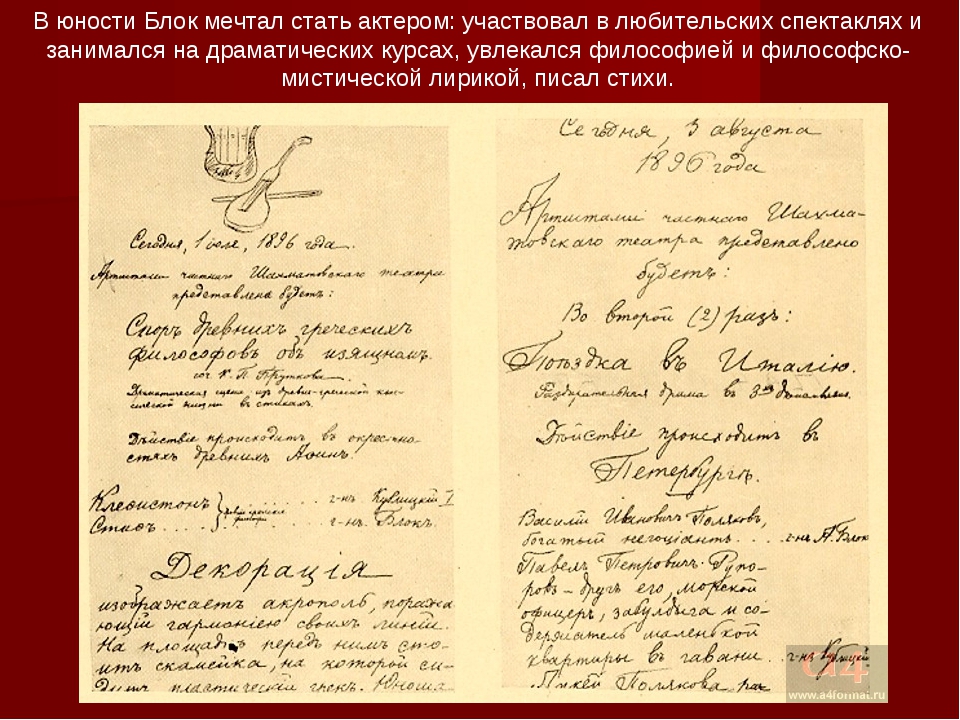 В юности Блок мечтал стать актером: участвовал в любительских спектаклях и
занимался на драматических курсах, увлекался философией и философско-
мистической лирикой, писал стихи.
Сегодня, 1 юля, 1896 года.
Артистами частнаго Шахматовскаго театра
представлена будетъ:
Споръ древнихъ греческихъ
философовъ объ изящномъ.
соч. К. П. Пруткова.
Драматическая сцена изъ древне-греческой
жизни въ стихахъ.
Дѣйствіе происходитъ въ окрестно-
стяхъ древнихъ Аѳинъ.
Клефистонъ } . . . . . . г-нъ Кублицкій I
Стифъ . . . . } . . . . г-нъ Блокъ.
Декорація
изображаетъ акрополь, поража-
ющій гармоніею своихъ линій.
На площадкѣ передъ нимъ сто-
итъ скамейка, на которой си-
дитъ пластическій грекъ. Юноша
Сегодня, 3 августа
1896 года
Артистами частнаго Шахма-
товскаго театра представлено
будетъ:
Во второй (2) разъ:
Поѣздка въ Италію.
Раздирательная драма въ 3хъ дѣйствіяхъ.
Дѣйствіе происходитъ въ
Петербургѣ.
Василій Ивановичъ Поляковъ,
богатый негоціантъ . . . . г-нъ А. Блок
Павелъ Петровичъ Рупо-
ровъ - другъ его, морской
офицеръ, забулдыга и со-
держатель маленькой
квартиры въ гавани . . г-нъ Кублицкій
Михѣй Полякова
a4
www.a4format.ru